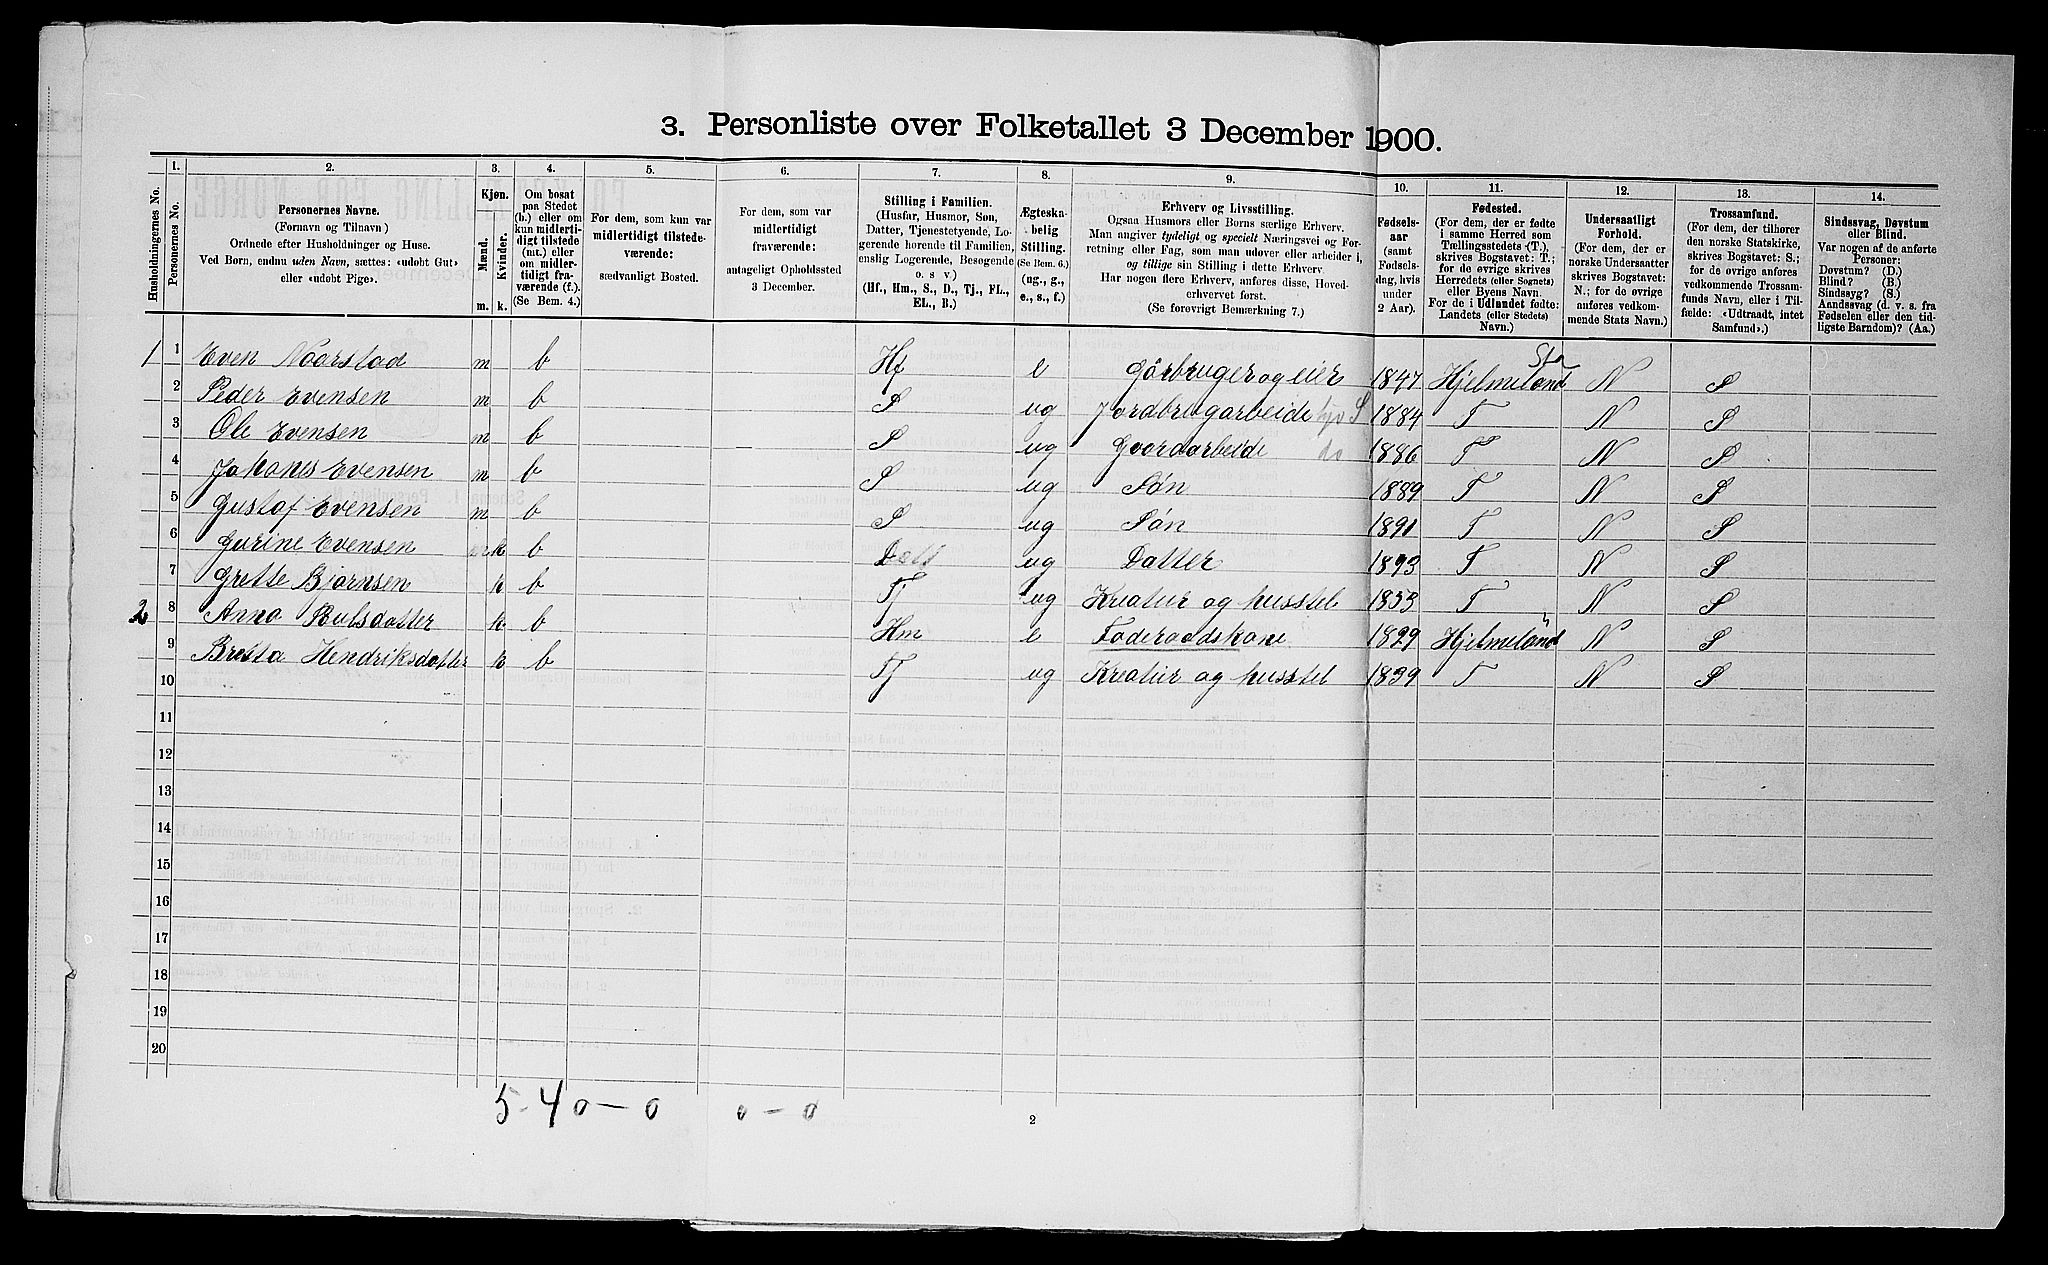 3. Personliste over Folketallet 3 December 1900.
1. 2. 3. 4. 5. 6. 7. 8. 9. 10. 11. 12. 13. 14.
Husholdningernes No.
Personernes No.
Personernes Navne.
(Fornavn og Tilnavn)
Ordnede efter Husholdninger og Huse.
Ved Børn, endnu uden Navn, sættes: «udøbt Gut»
eller «udøbt Pige».
Kjøn.
Mænd. Kvinder.
m. k.
Om bosat
paa Stedet
(b.) eller om
kun midler-
tidigt tilstede
(mt.) eller
om midler-
tidigt fra-
værende (f.).
(Se Bem. 4.)
For dem, som kun var
midlertidigt tilstede-
værende:
sædvanligt Bosted.
For dem, som var
midlertidigt
fraværende:
antageligt Opholdssted
3 December.
Stilling i Familien.
(Husfar, Husmor, Søn,
Datter, Tjenestetyende, Lo-
gerende hørende til Familien,
enslig Logerende, Besøgende
o. s. v.)
(Hf., Hm., S., D., Tj., FL.,
EL., B.)
Ægteska-
belig
Stilling.
(Se Bem. 6.)
(ug., g.,
e., s., f.)
Erhverv og Livsstilling.
Ogsaa Husmors eller Børns særlige Erhverv.
Man angiver tydeligt og specielt Næringsvei og For-
retning eller Fag, som man udøver eller arbeider i,
og tillige sin Stilling i dette Erhverv.
Har nogen flere Erhverv, anføres disse, Hoved-
erhvervet først.
(Se forøvrigt Bemærkning 7.)
Fødsels-
aar
(samt
Fødsels-
dag, hvis
under
2 Aar).
Fødested.
(For dem, der er fødte
i samme Herred som
Tællingsstedets (T.),
skrives Bogstavet: T.;
for de øvrige skrives
Herredets (eller Sognets)
eller Byens Navn.
For de i Udlandet fødte:
Landets (eller Stedets)
Navn.)
Undersaatligt
Forhold.
(For dem, der er
norske Undersaatter
skrives Bogstavet:
N.; for de øvrige
anføres vedkom-
mende Stats Navn.)
Trossamfund.
(For dem, der tilhører
den norske Statskirke,
skrives Bogstavet: S.;
for de øvrige anføres
vedkommende Trossam-
funds Navn, eller i Til-
fælde: «Udtraadt, intet
Samfund».)
Sindssvag, Døvstum
eller Blind.
Var nogen af de anførte
Personer:
Døvstum? (D.)
Blind? (B.)
Sindssyg? (S.)
Aandssvag (d. v. s. fra
Fødselen eller den tid-
ligste Barndom)? (Aa.)
1 1 Even Noorstad m b Hf e Gårbruger og eier 1847 Hjelmeland N S
2 Peder Evensen m b S ug Jordbrugarbeide 1884 T N S
3 Ole Evensen m b S ug Goordarbeide do 1886 T N S
4 Johanes Evensen m b S ug Søn 1889 T N S
5 Gustaf Evensen m b S ug Søn 1891 T N S
6 Gurine Evensen k b Datt ug Datter 1893 T N S
7 Grette Bjørnsen k b Tj ug Kreatur og husstel 1833 T N S
2 8 Anna Pulsdatter k b Hm e Føderaadskone 1829 Hjelmeland N S
9 Breta Hendriksdatter k b Tj ug Kreatur og husstel 1839 T N S
10
11
12
13
14
15
16
17
18
19
20
5-4 0-0 0-0
2